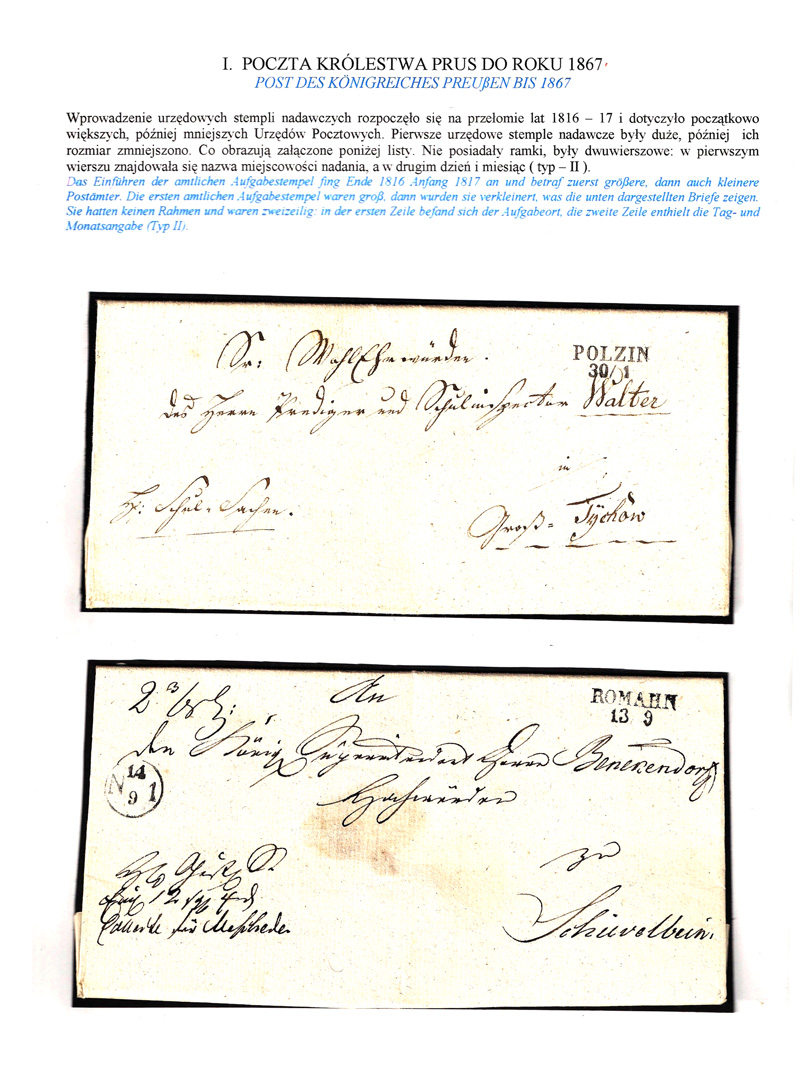 I. POCZTA KRÓLESTWA PRUS DO ROKU 1867
POST DES KÖNIGREICHES PREUßEN BIS 1867
Wprowadzenie urzędowych stempli nadawczych rozpoczęło się na przełomie lat 1816 – 17 i dotyczyło początkowo
większych, później mniejszych Urzędów Pocztowych. Pierwsze urzędowe stemple nadawcze były duże, później ich
rozmiar zmniejszono. Co obrazują załączone poniżej listy. Nie posiadały ramki, były dwuwierszowe: w pierwszym
wierszu znajdowała się nazwa miejscowości nadania, a w drugim dzień i miesiąc ( typ – II ).
Das Einführen der amtlichen Aufgabestempel fing Ende 1816 Anfang 1817 an und betraf zuerst größere, dann auch kleinere
Postämter. Die ersten amtlichen Aufgabestempel waren groß, dann wurden sie verkleinert, was die unten dargestellten Briefe zeigen.
Sie hatten keinen Rahmen und waren zweizeilig: in der ersten Zeile befand sich der Aufgabeort, die zweite Zeile enthielt die Tag- und
Monatsangabe (Typ II).
POLZIN
30/1
Sr: WohlEhrwürden.
des Herrn Prediger und Schulinspector Walter
in
Schul-Sachen.
Groß-Tychow
ROMAHN
13 9
An
den König Superintendent Herrn Benekendorf
Hochwürden
14
N 1
9
zu
Schievelbein.